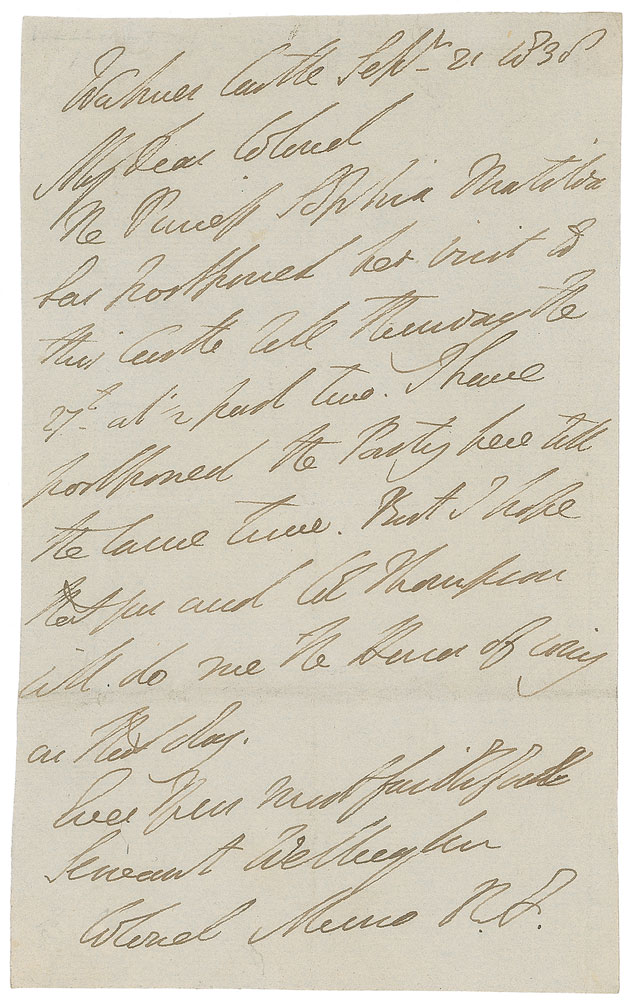 Walmer Castle Septr 21 1838
My Dear Colonel
The Princess Sophia Matilda
has postponed her visit to
this Castle till Thursday the
27th at 1/2 past two. I have
postponed the Party here till
the same time. But I hope
that you and Col Thompson
will do me the Honor of coming
on that day.
Ever Yours most faithful
Servant Wellington
Colonel Munro R.A.